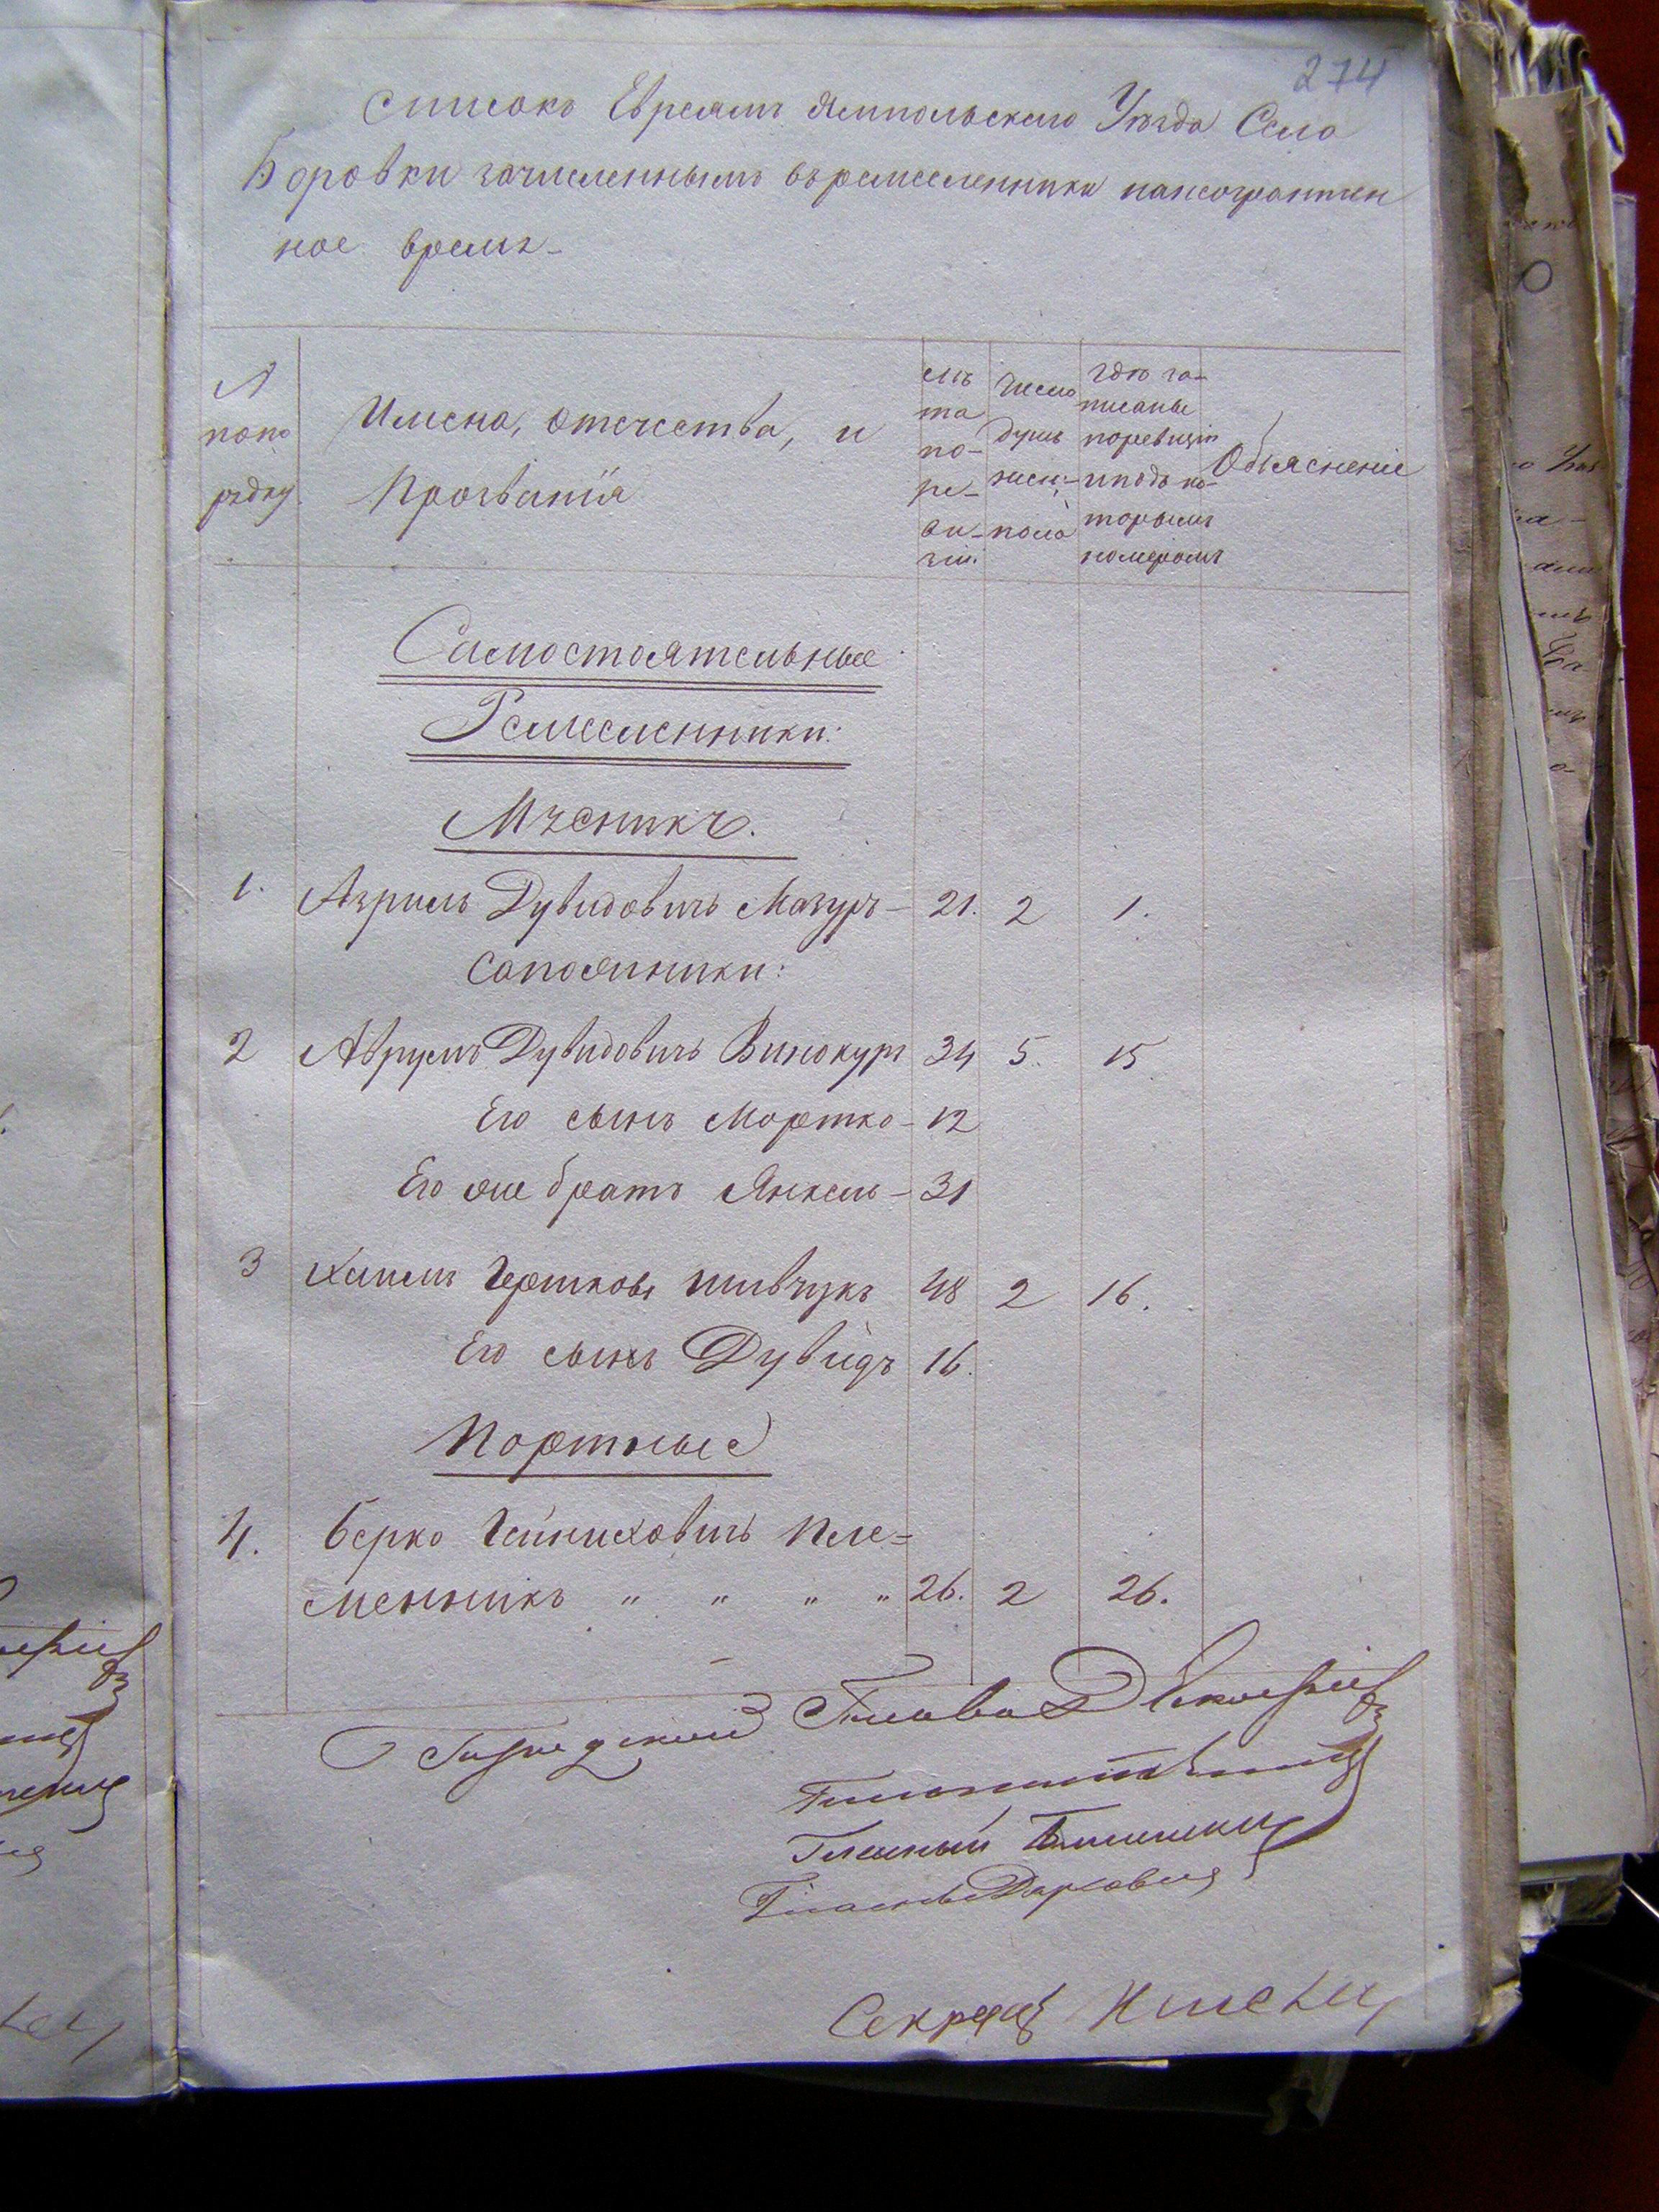 274
Списокъ Евреямъ Ямпольскаго Уѣзда Села
Боровки зачисленнымъ въ ремесленники
ное время
№ попо рядку
Имена, Отечества, и Прозванія
лѣ та по ре- ви зіи.
Число душъ женс: пола
Гдѣ за- писаны поревизіи и подъ ко- торымъ номеромъ
Объясненіе
Самостоятельные
Ремесленники:
Мясникъ.
1. Азриль Дувидовичъ Мазуръ - 21. 2 1.
Сапожники:
2 Аврумъ Дувидовичъ Винокуръ 34 5. 15
Его сынъ Мортко - 12
Его же братъ Янкель - 31
3 Хаимъ Гершковъ Шивчукъ 48 2 16.
Его сынъ Дувидъ 16.
Портные
4. Берко Гейниховичъ Пле-
менникъ " " " " 26. 2 26.
Голова
Гласный
Секрет